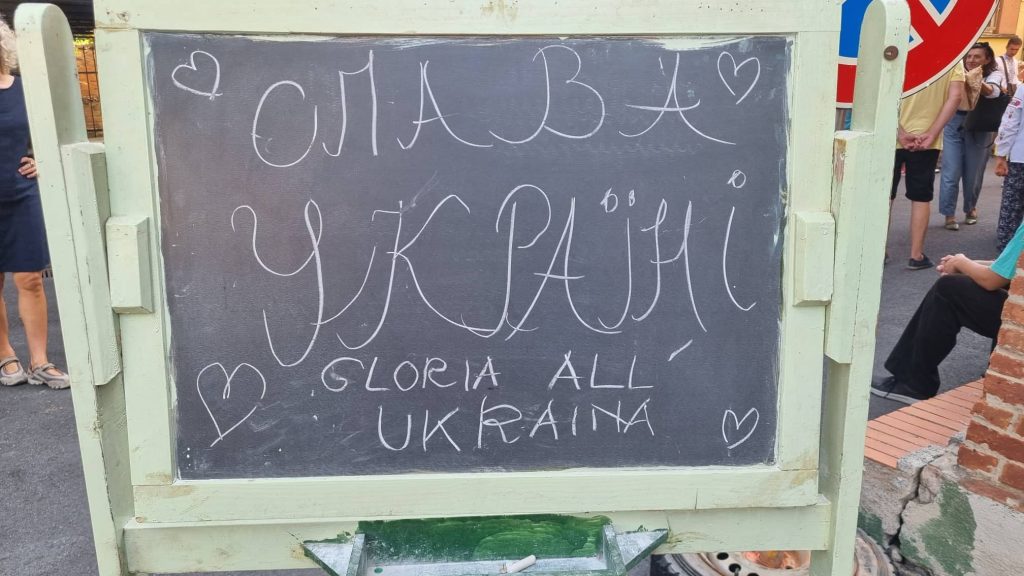 СЛАВА
УКРАЇНІ
GLORIA ALL'
UKRAINA